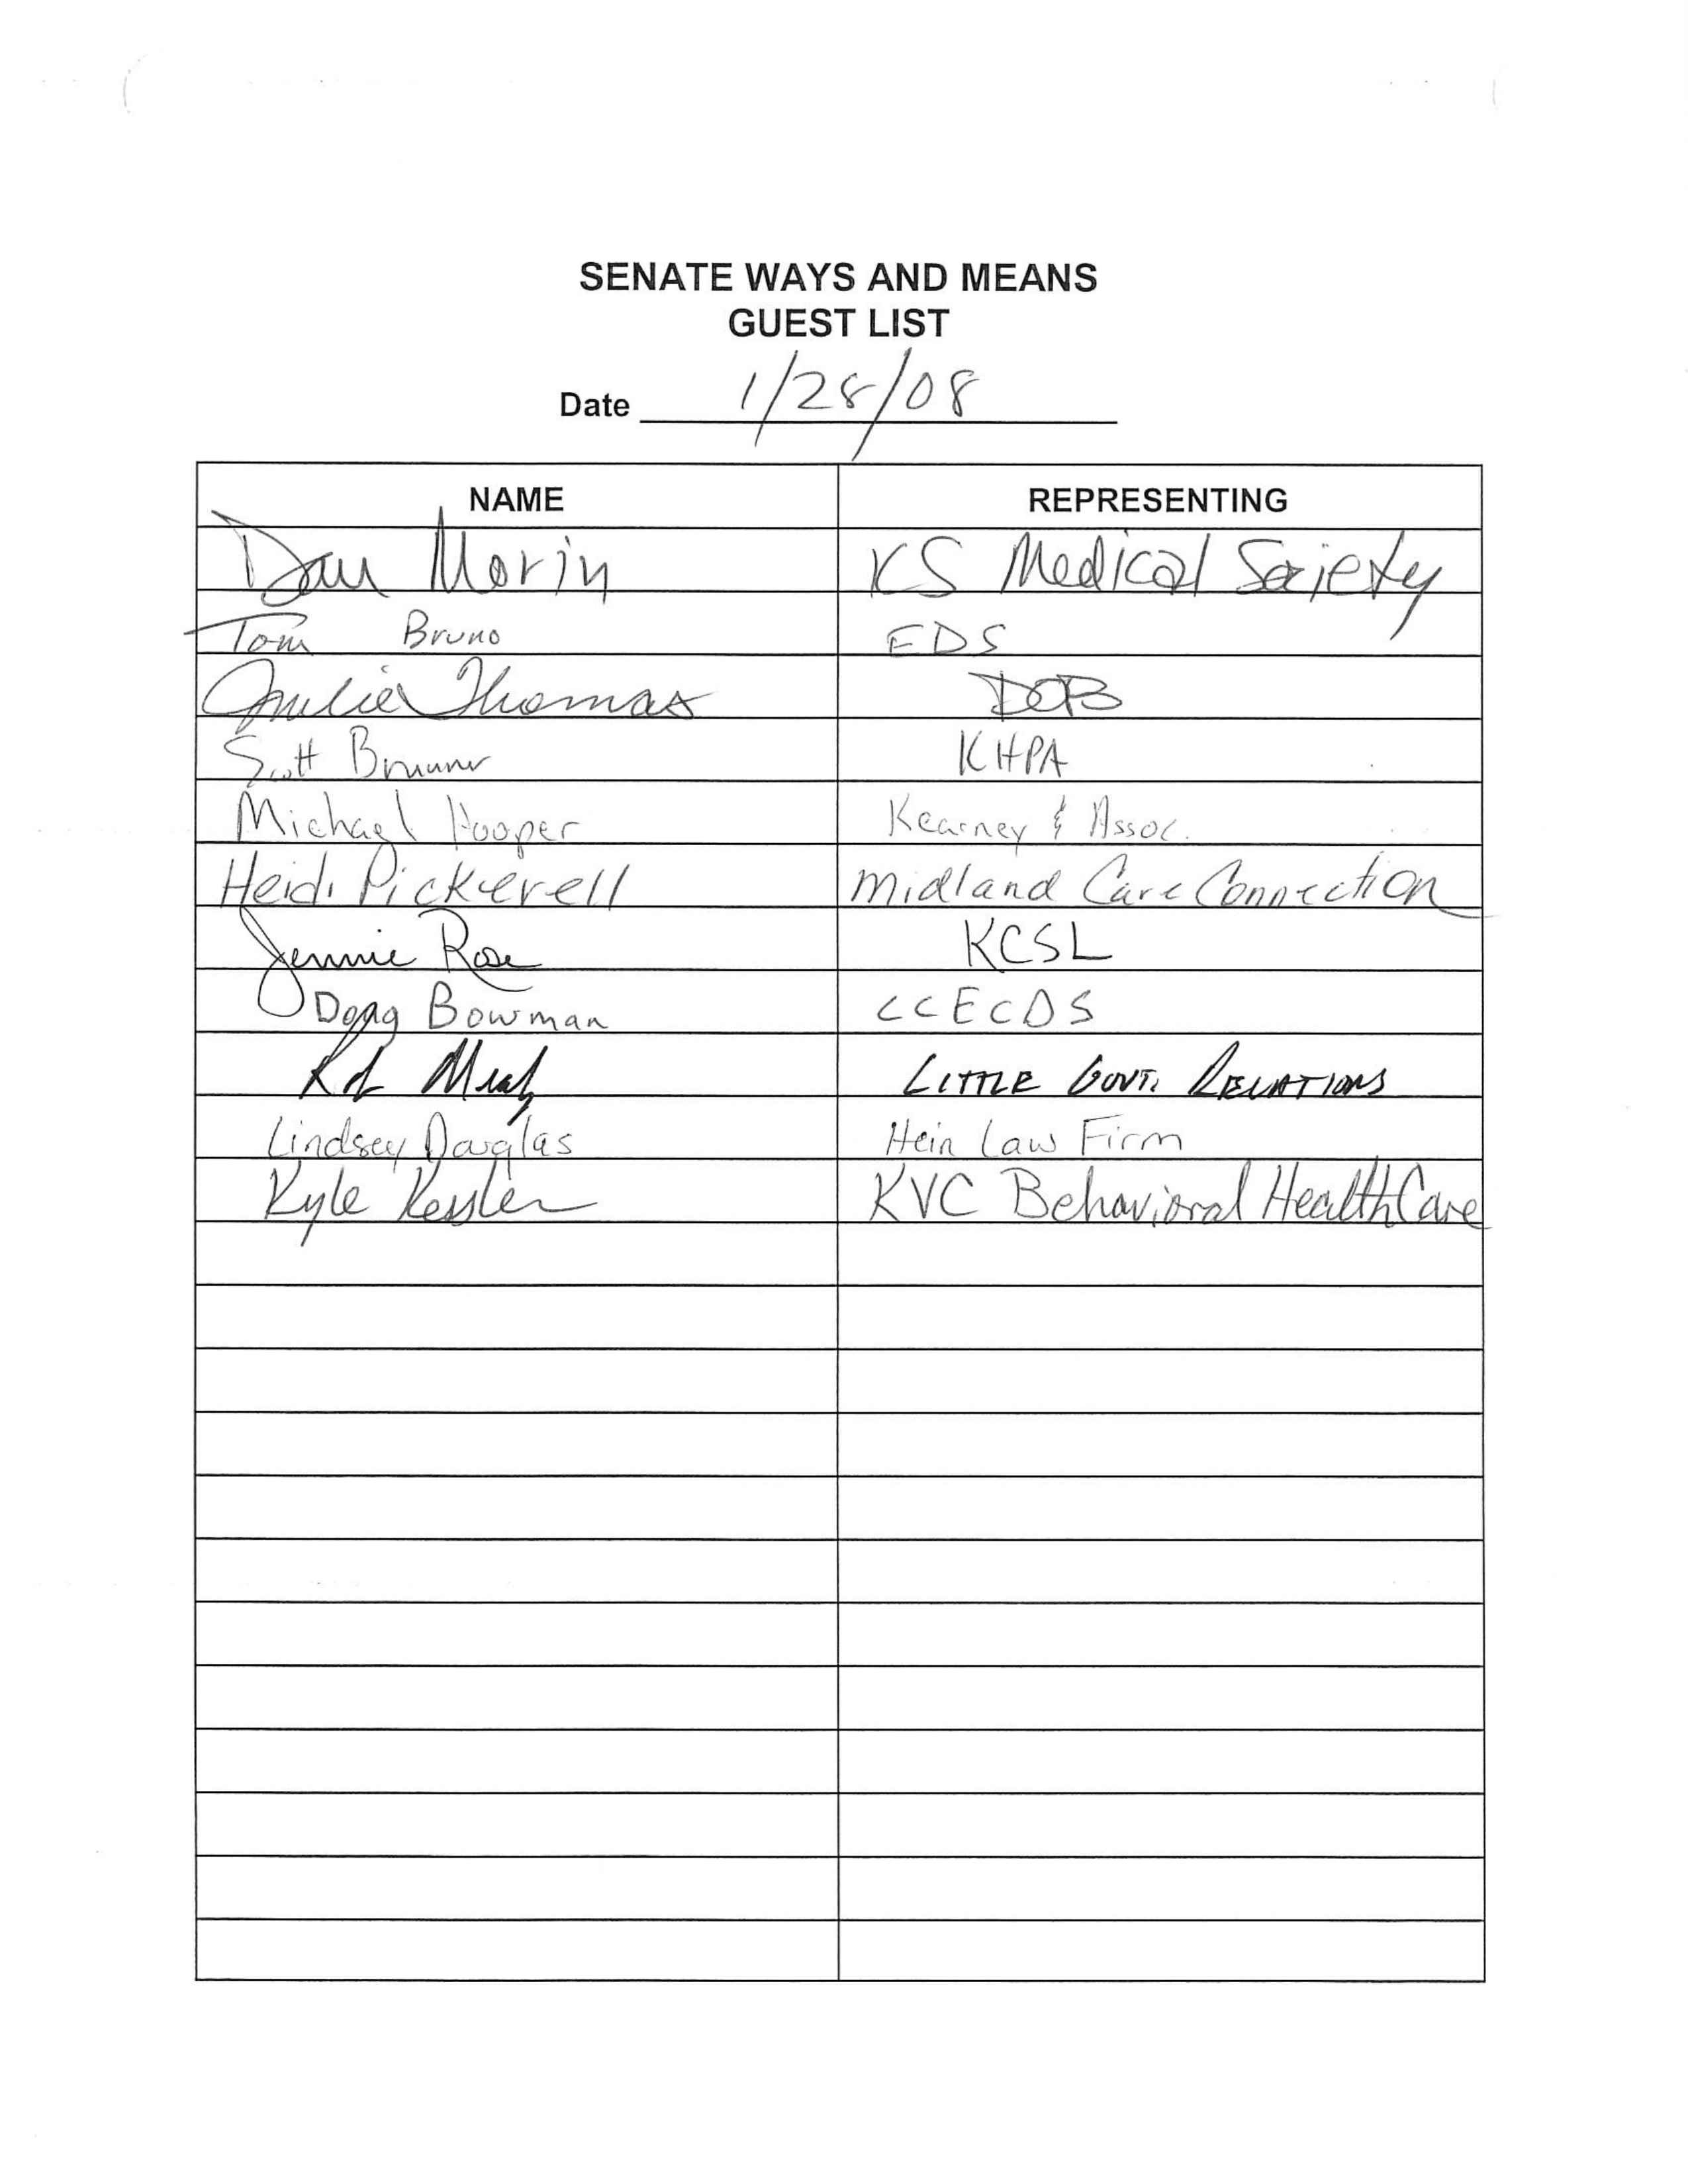 SENATE WAYS AND MEANS
GUEST LIST
Date 1/28/08
NAME REPRESENTING
Dan Morin KS Medical Society
Tom Bruno EDS
Thomas DOB
Scott Brunner KHPA
Michael Hooper Kearney & Assoc.
Heidi Pickerell Midland Care Connection
Jennie Rose KCSL
Doug Bowman CCECDS
LITTLE GOVT. RELATIONS
Lindsey Douglas Hein Law Firm
Kyle Kessler KVC Behavioral HealthCare